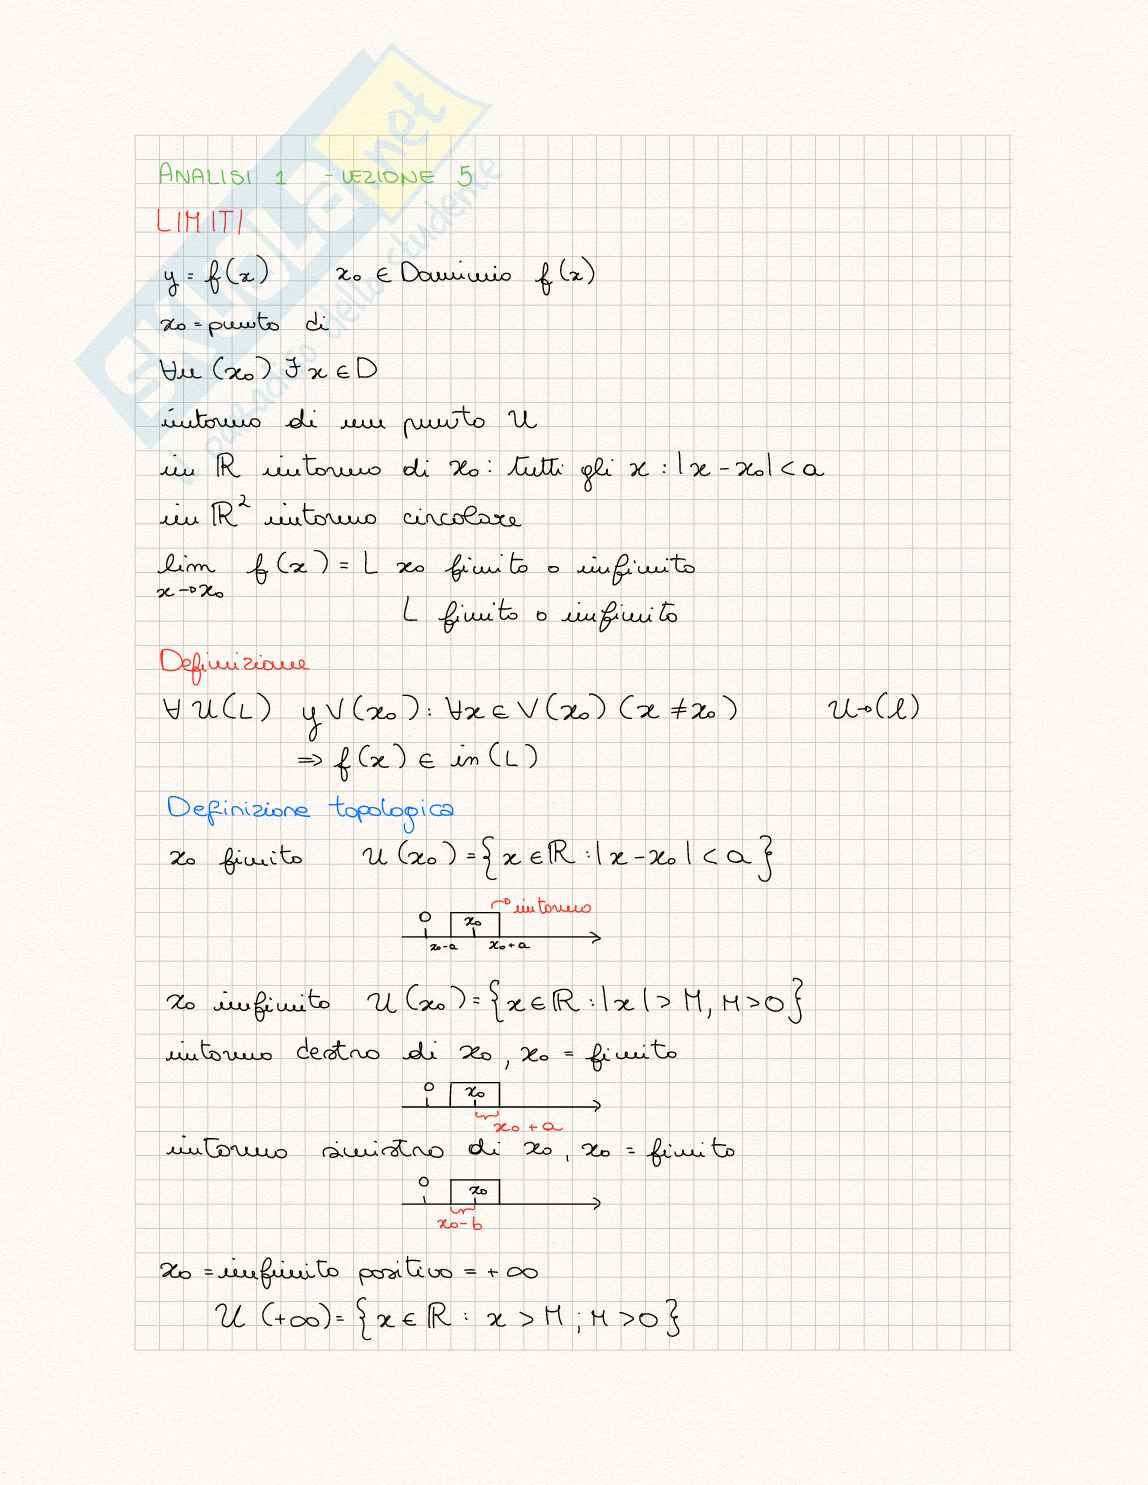 ANALISI 1 - LEZIONE 5
LIMITI
y = f(x) x₀ ∈ Dominio f(x)
x₀ = punto di
∀u (x₀) ∃ x ∈ D
intorno di un punto U
in ℝ intorno di x₀: tutti gli x : |x - x₀| < a
in ℝ² intorno circolare
lim f(x) = L x₀ finito o infinito
x→x₀
L finito o infinito
Definizione
∀ U(L) y V(x₀): ∀x ∈ V(x₀) (x ≠ x₀) U→(l)
⇒ f(x) ∈ in(L)
Definizione topologica
x₀ finito U(x₀) = {x ∈ ℝ : |x - x₀| < a}
→ intorno
0 x₀
x₀-a x₀+a
x₀ infinito U(x₀) = {x ∈ ℝ : |x| > M, M > 0}
intorno destro di x₀, x₀ = finito
0 x₀
x₀ + a
intorno sinistro di x₀, x₀ = finito
0 x₀
x₀ - b
x₀ = infinito positivo = +∞
U (+∞) = {x ∈ ℝ : x > M ; M > 0}
SKUOLA.net
il paradiso dello studente